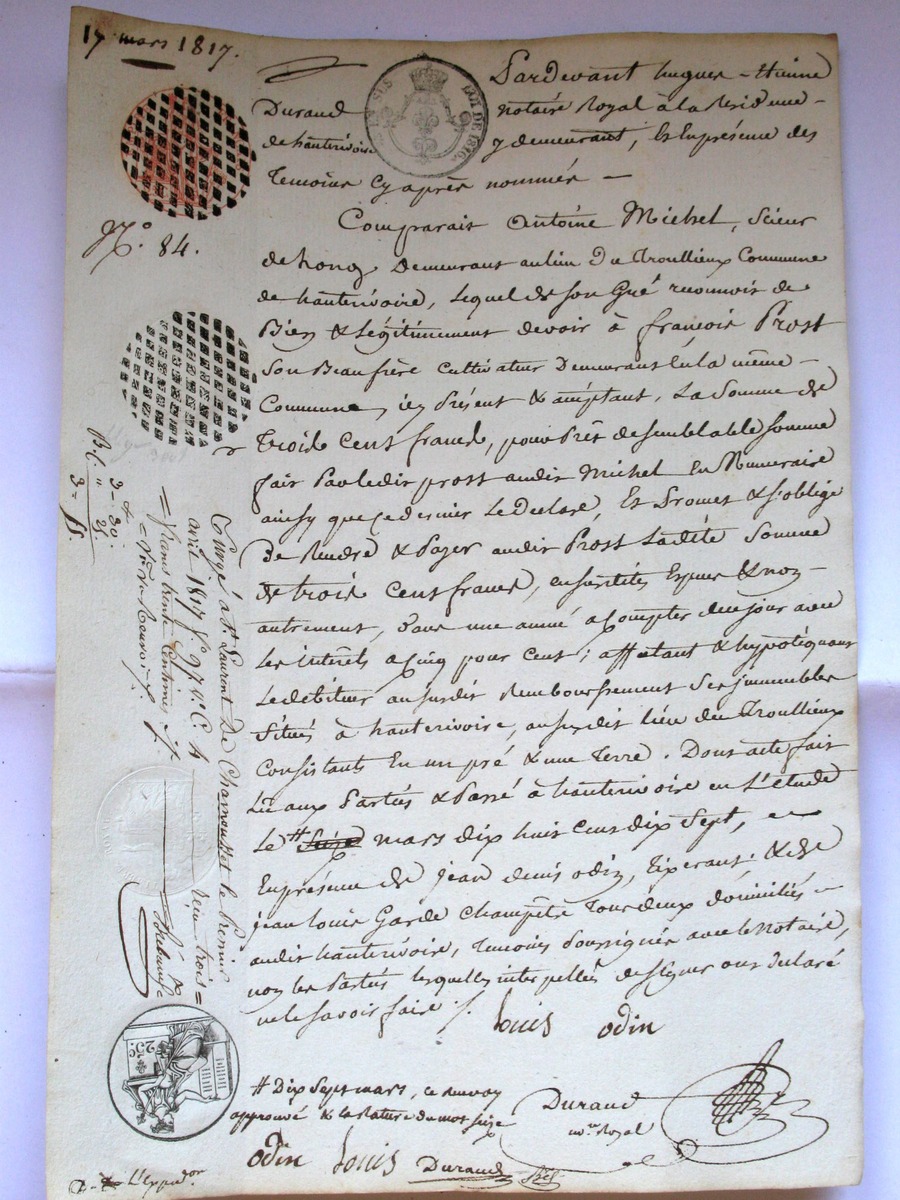 17 mars 1817.
Pardevant hugues - Etiénne
Durand notaire Royal à la Residence -
de hauterivoire y demeurant, Et Enprésence des
Temoins Cy après nommés -
LOI DE 1816.
N.º 84.
Comparait Antoine Michel, Scieur
de long Demeurant au lieu du Troullieux Commune
de hauterivoire, lequel de son Gré reconnoit de
Bien & Légitimement devoir à françois Prost
Son Beaufrère cultivateur Demeurant En la même -
Commune, icy Présent & acceptant, La Somme de
Trois Cent francs, pour Prêt de semblable somme
fait Par ledit prost audit Michel En Numeraire
ainsy que ce dernier Le Declare, Et Promet & s'oblige
De Rendre & Payer audit Prost Ladite Somme
de trois Cent francs, en susdites Espèces & non -
autrement, Dans une année à Compter de ce jour avec
Les intérêts à cinq pour Cent; affectant & hypotéquant
Le débiteur au susdit Remboursement Ses immeubles
Situés à hauterivoire, au susdit lieu du Troullieux
Consistants En un pré & une Terre. Dont acte fait
Lu aux Parties & Passé à hauterivoire en L'étude
Le # Seize mars dix huit cent dix Sept, en
En présence de jean denis odin, & de
jean Louis Garde Champêtre Tous deux domiciliés -
audit hauterivoire, Temoins Soussignés avec le Notaire,
non les Parties lesquelles interpellées de signer ont déclaré
ne le savoir faire ./.
Louis odin
# Dix Sept mars, ce renvoy
approuvé & la Rature du mot seize
Durand
not.re Royal
odin Louis Durand
Enregé à S.t Laurent De Chamousset le premier
avril 1817 f.o 97 v.o C. 4 reçu trois =
francs trente Centimes
3 - 30.
25c.